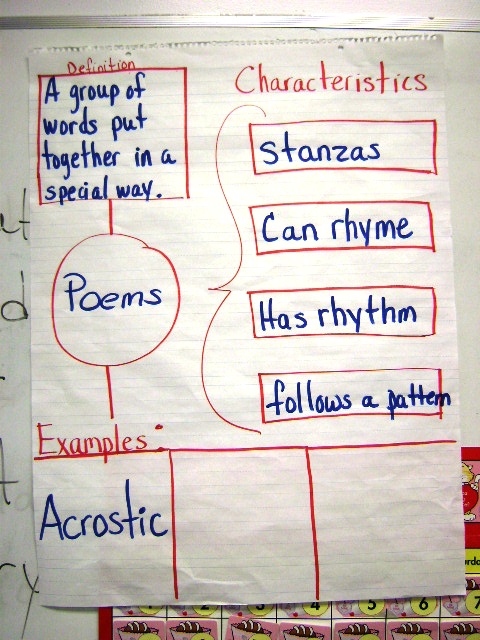 Definition
A group of
words put
together in a
special way.
Poems
Characteristics
Stanzas
Can rhyme
Has rhythm
follows a pattern
Examples:
Acrostic
4
5
6
7